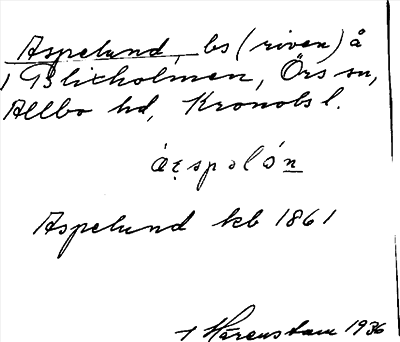 Aspelund, bs (riven) å
Blixholmen, Örs sn,
Allbo hd, Kronobs l.
Aspelund kb 1861
Härenstam 1936